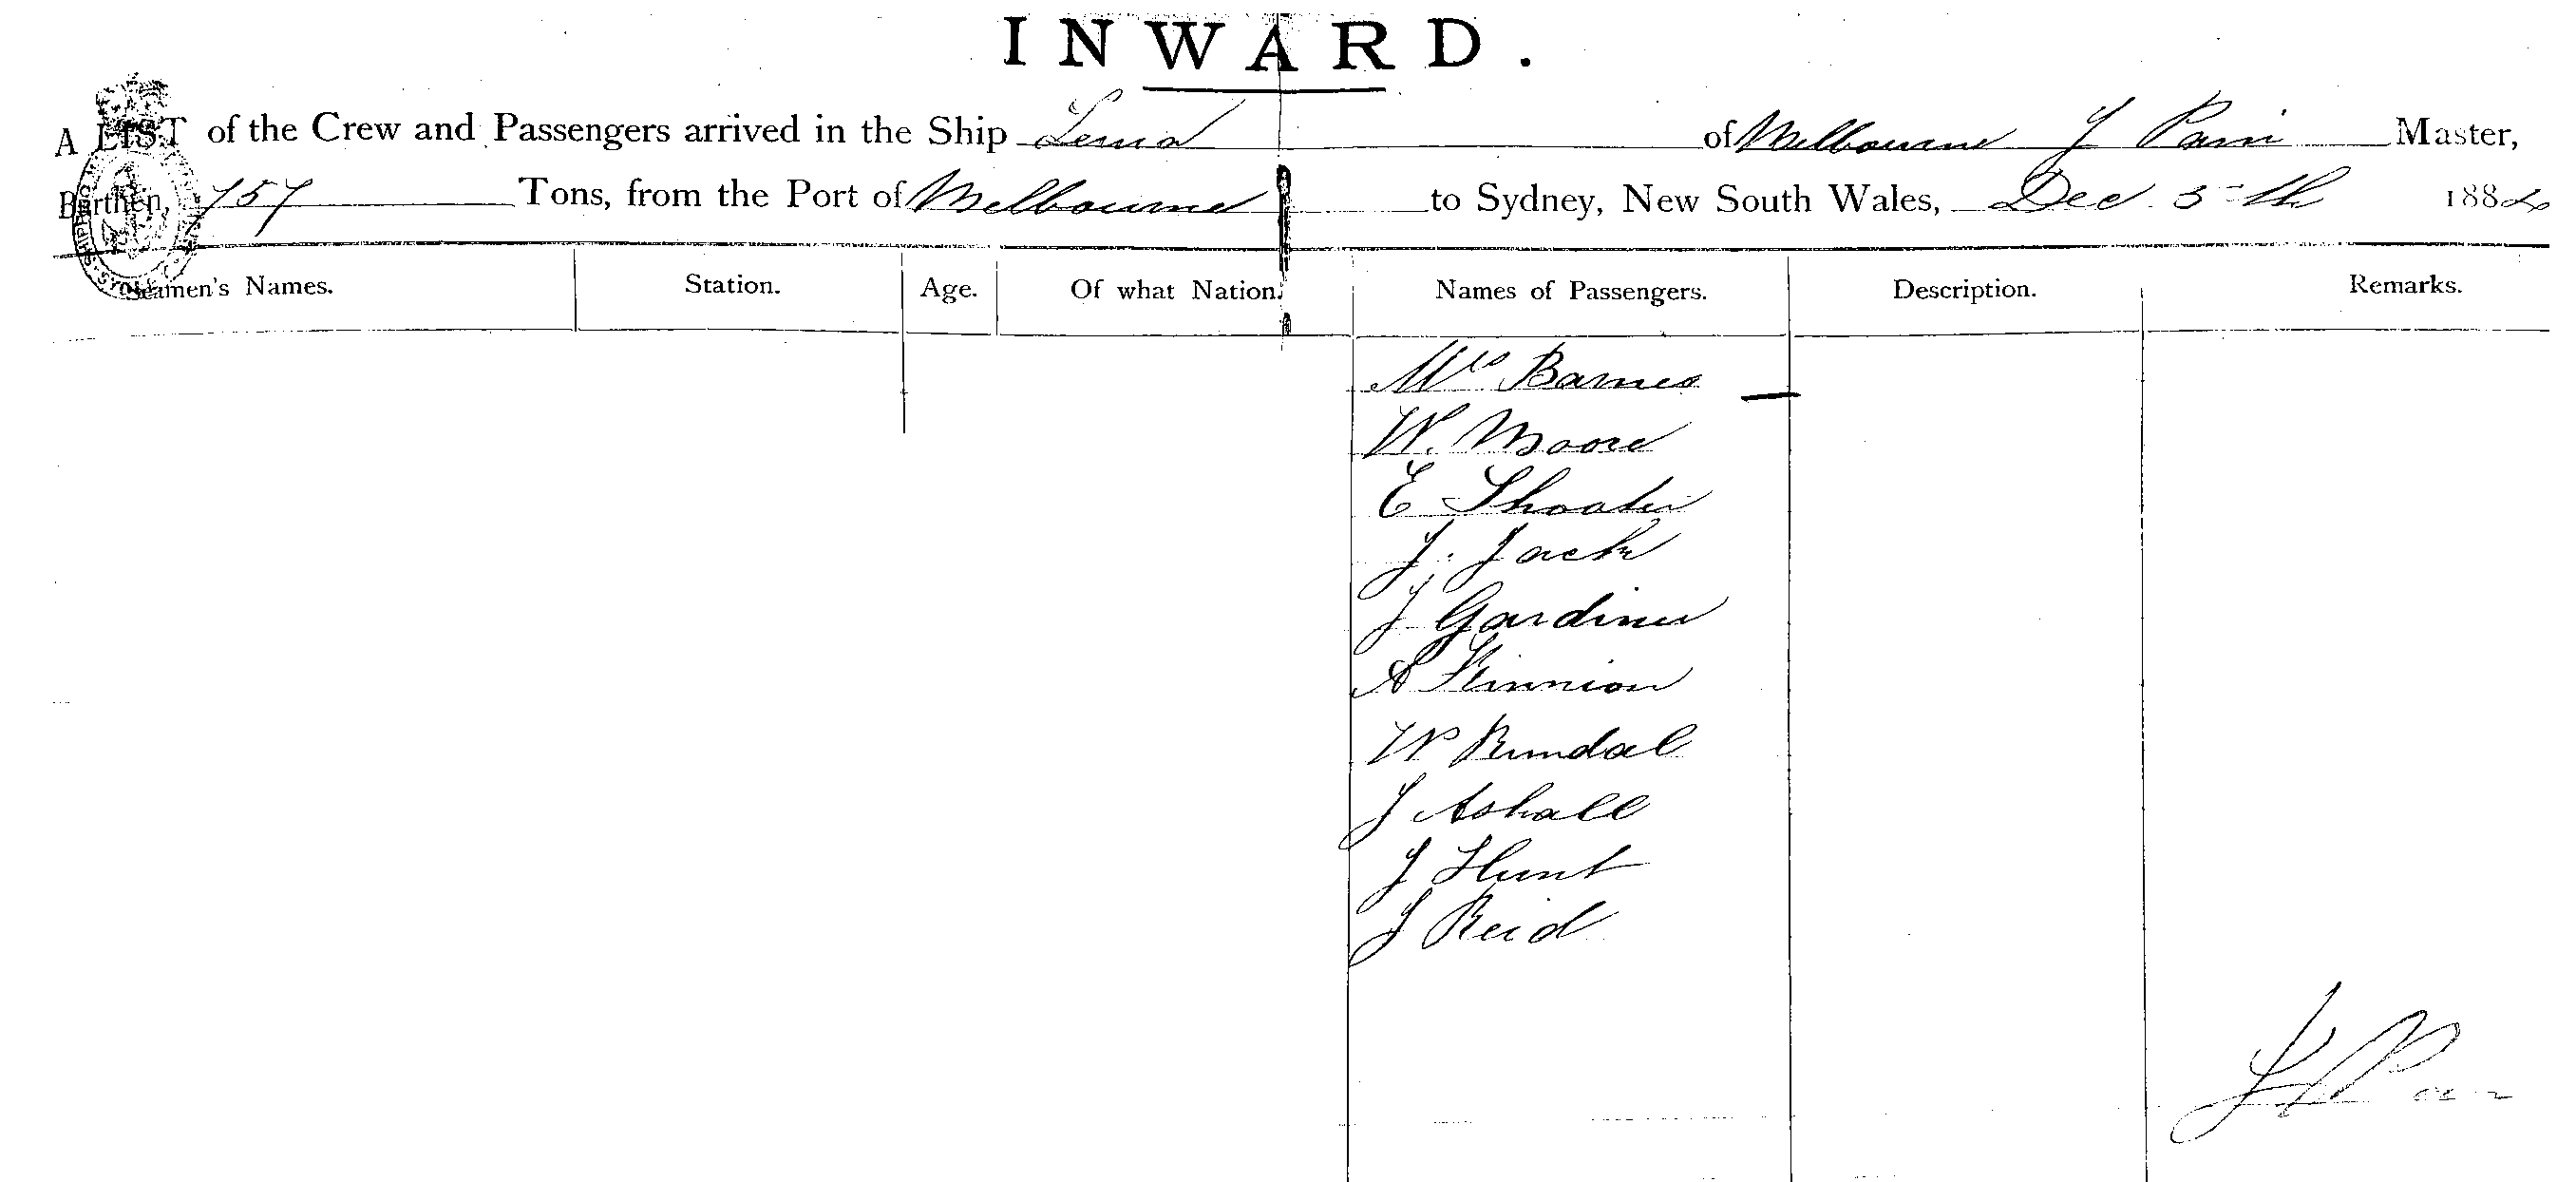 INWARD.
A LIST of the Crew and Passengers arrived in the Ship of Melbourne J Pain Master,
Burthen, 757 Tons, from the Port of Melbourne to Sydney, New South Wales, Dec 5th 188
Seamen's Names. Station. Age. Of what Nation. Names of Passengers. Description. Remarks.
Mrs Barnes
W. Moore
E Shooter
J. Jack
J Gardiner
A Flinnion
W Rundal
J Ashall
J Hunt
J Reid